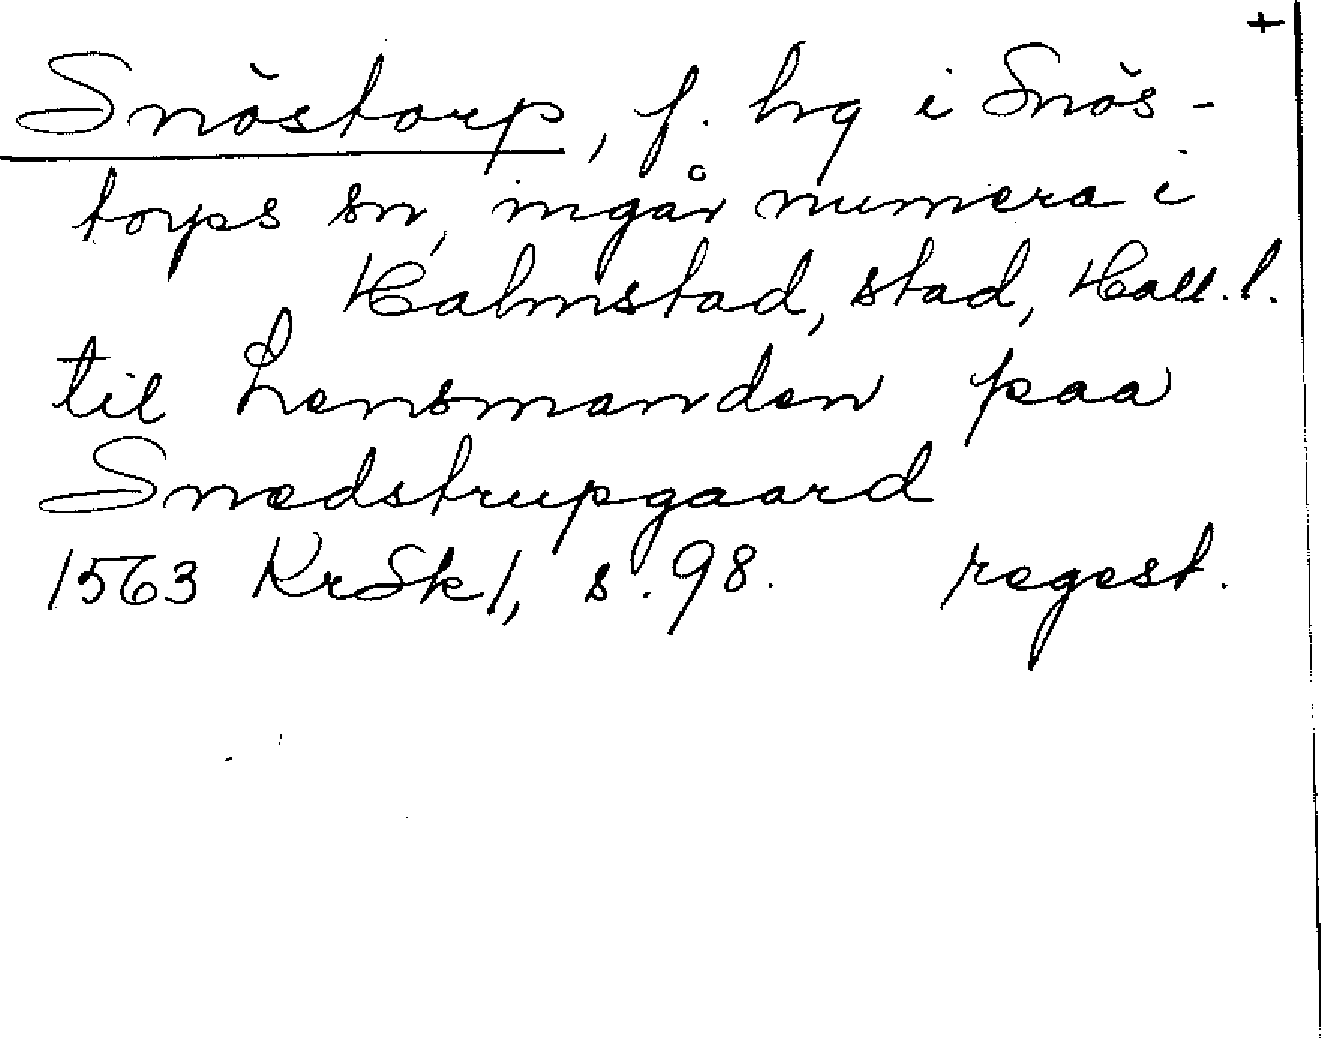 +
Snöstorp, f. hg i Snös-
torps sn, ingår numera i
Halmstad, stad, Hall. l.
til Lensmanden paa
Snedstrupgaard
1563 KrSk 1, s. 98. regest.